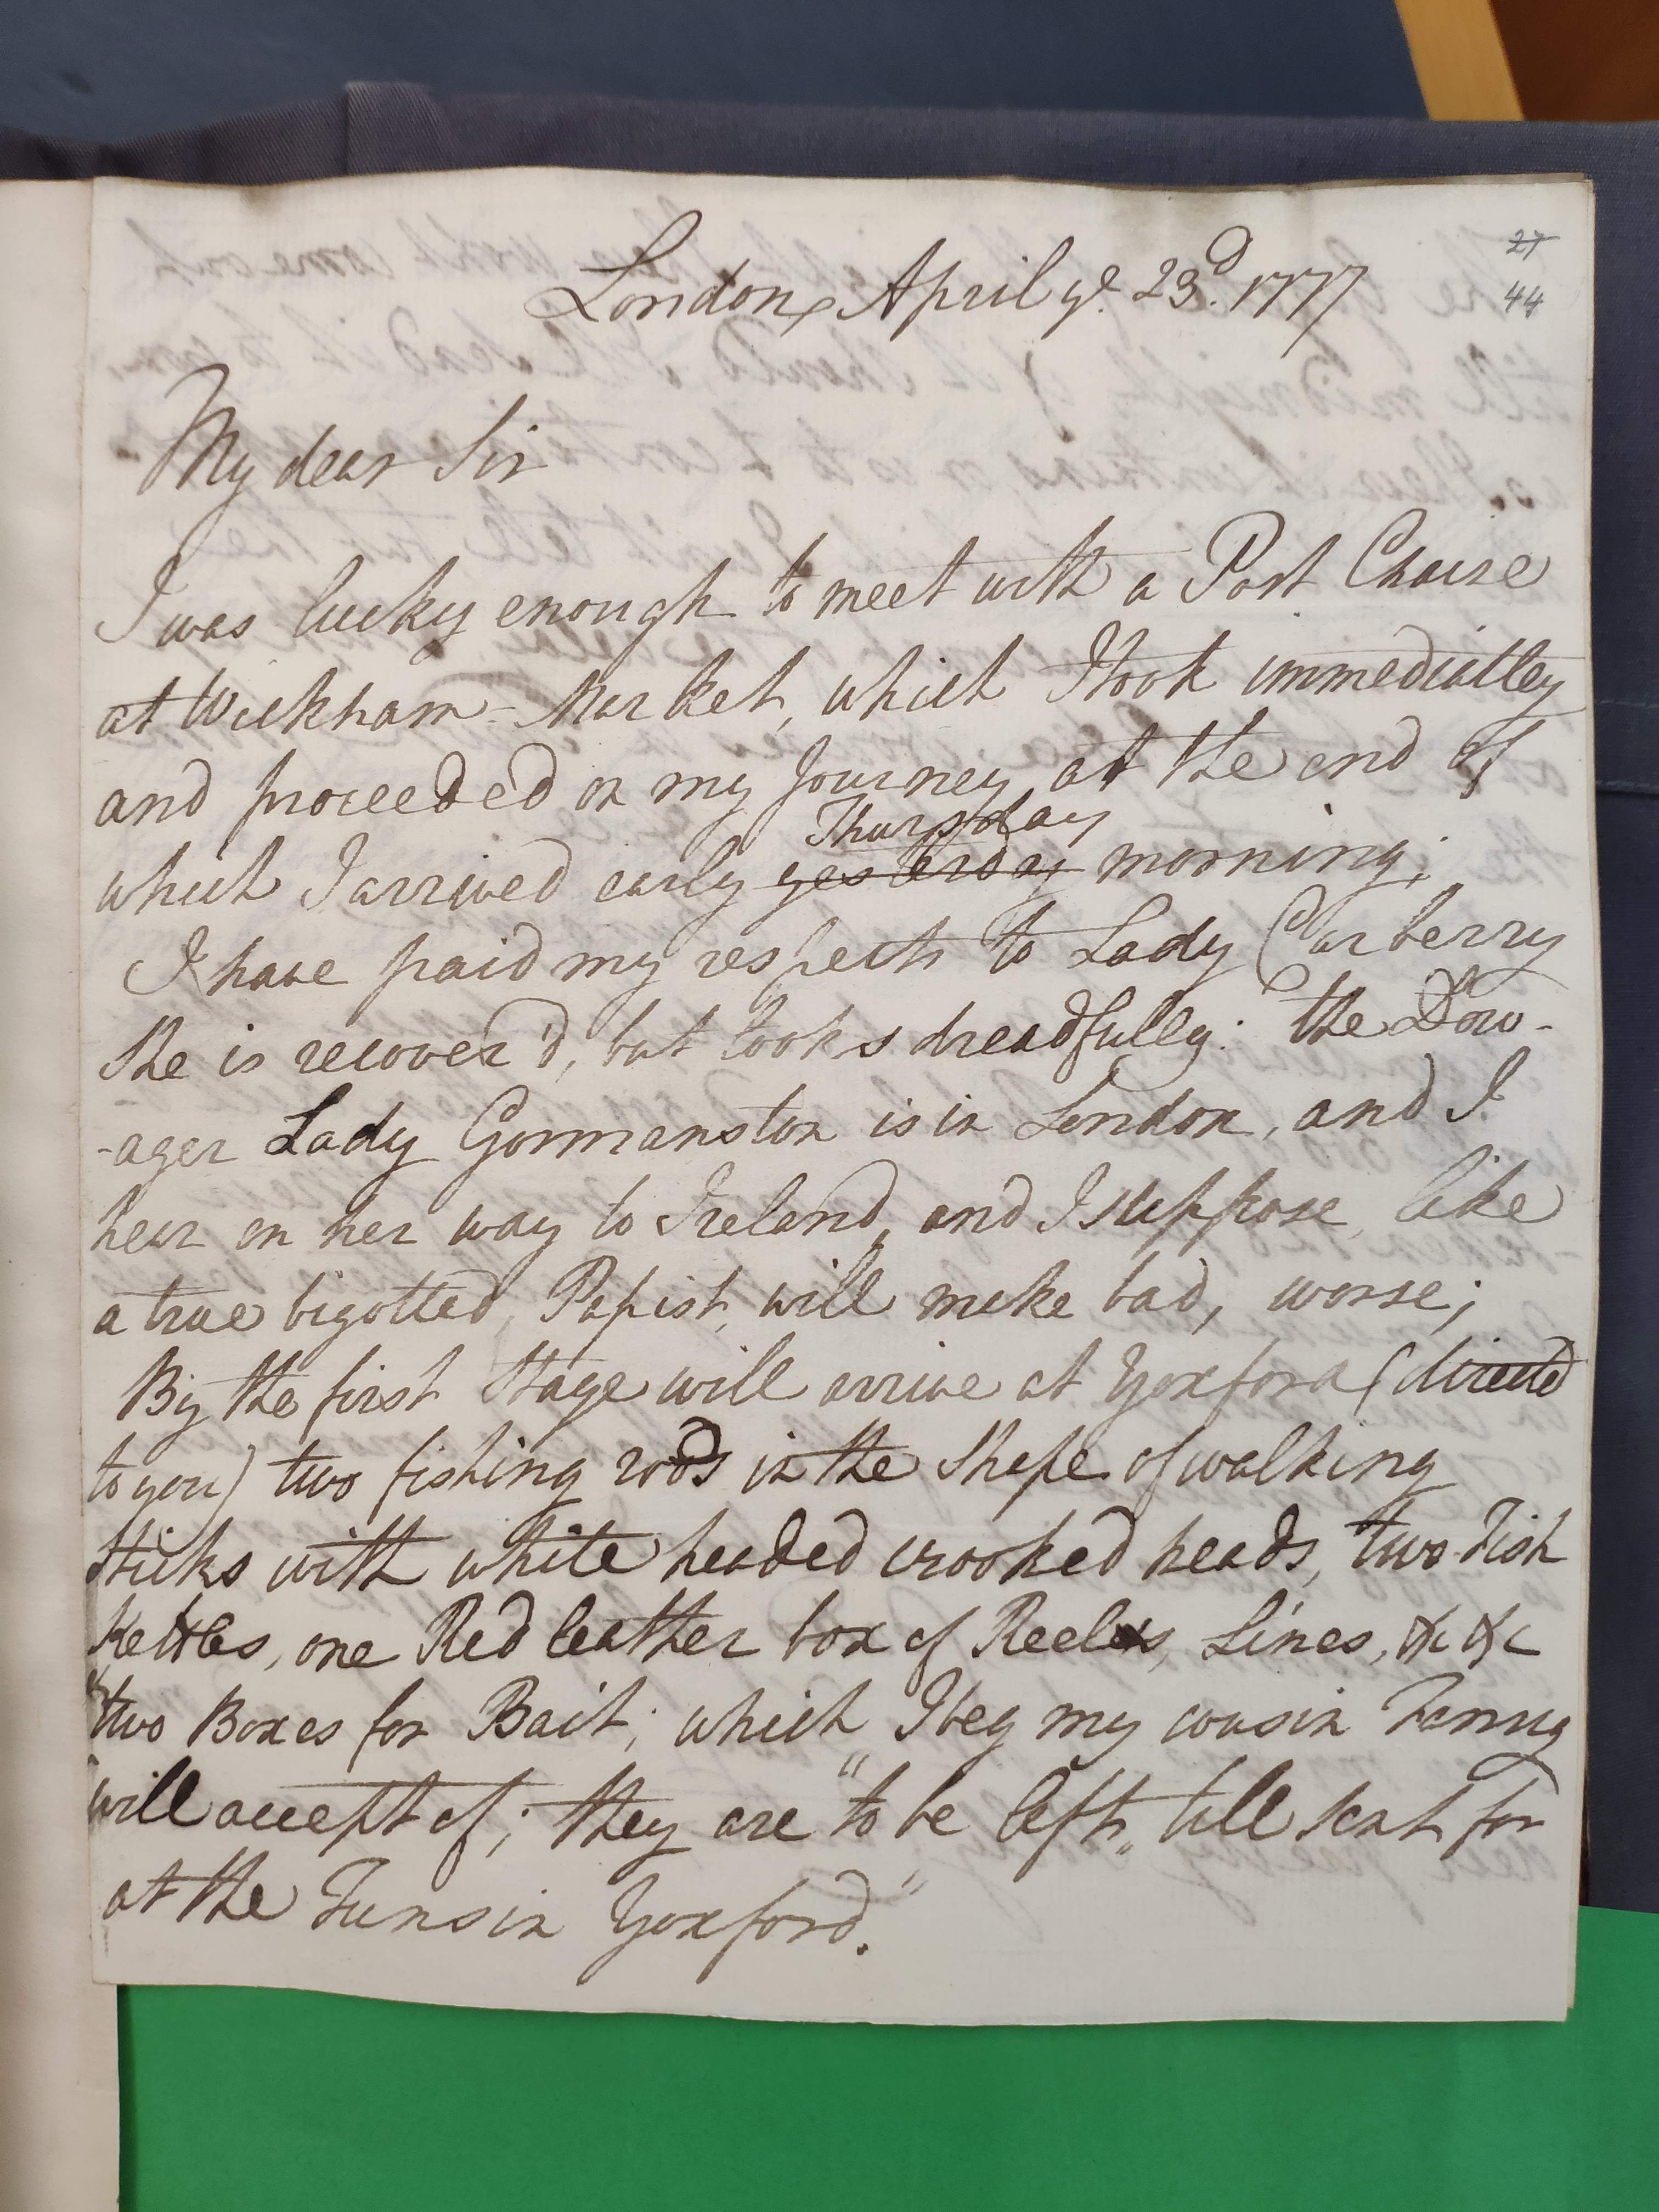 27
44
London, April ye. 23d. 1777
My dear Sir
I was lucky enough to meet with a Post Chaise
at Wickham-Market, which I took immediatley
and proceeded on my Journey, at the end of
Thursday
which I arrived early yesterday morning;
I have paid my respects to Lady Carberry
She is recover'd, but looks dreadfully: the Dow-
-ager Lady Gormanston is in London, and I
hear on her way to Ireland, and I suppose, like
a true bigotted Papist, will make bad, worse;
By the first Stage will arrive at Yoxford (directed
to you) two fishing rods in the Shape of walking
Sticks with white headed crooked heads, two Fish
Kettles, one Red leather box of Reels, Lines, &c &c
two Boxes for Bait; which I beg my cousin Fanny
will accept of; they are "to be left, till sent for
at the in Yoxford."